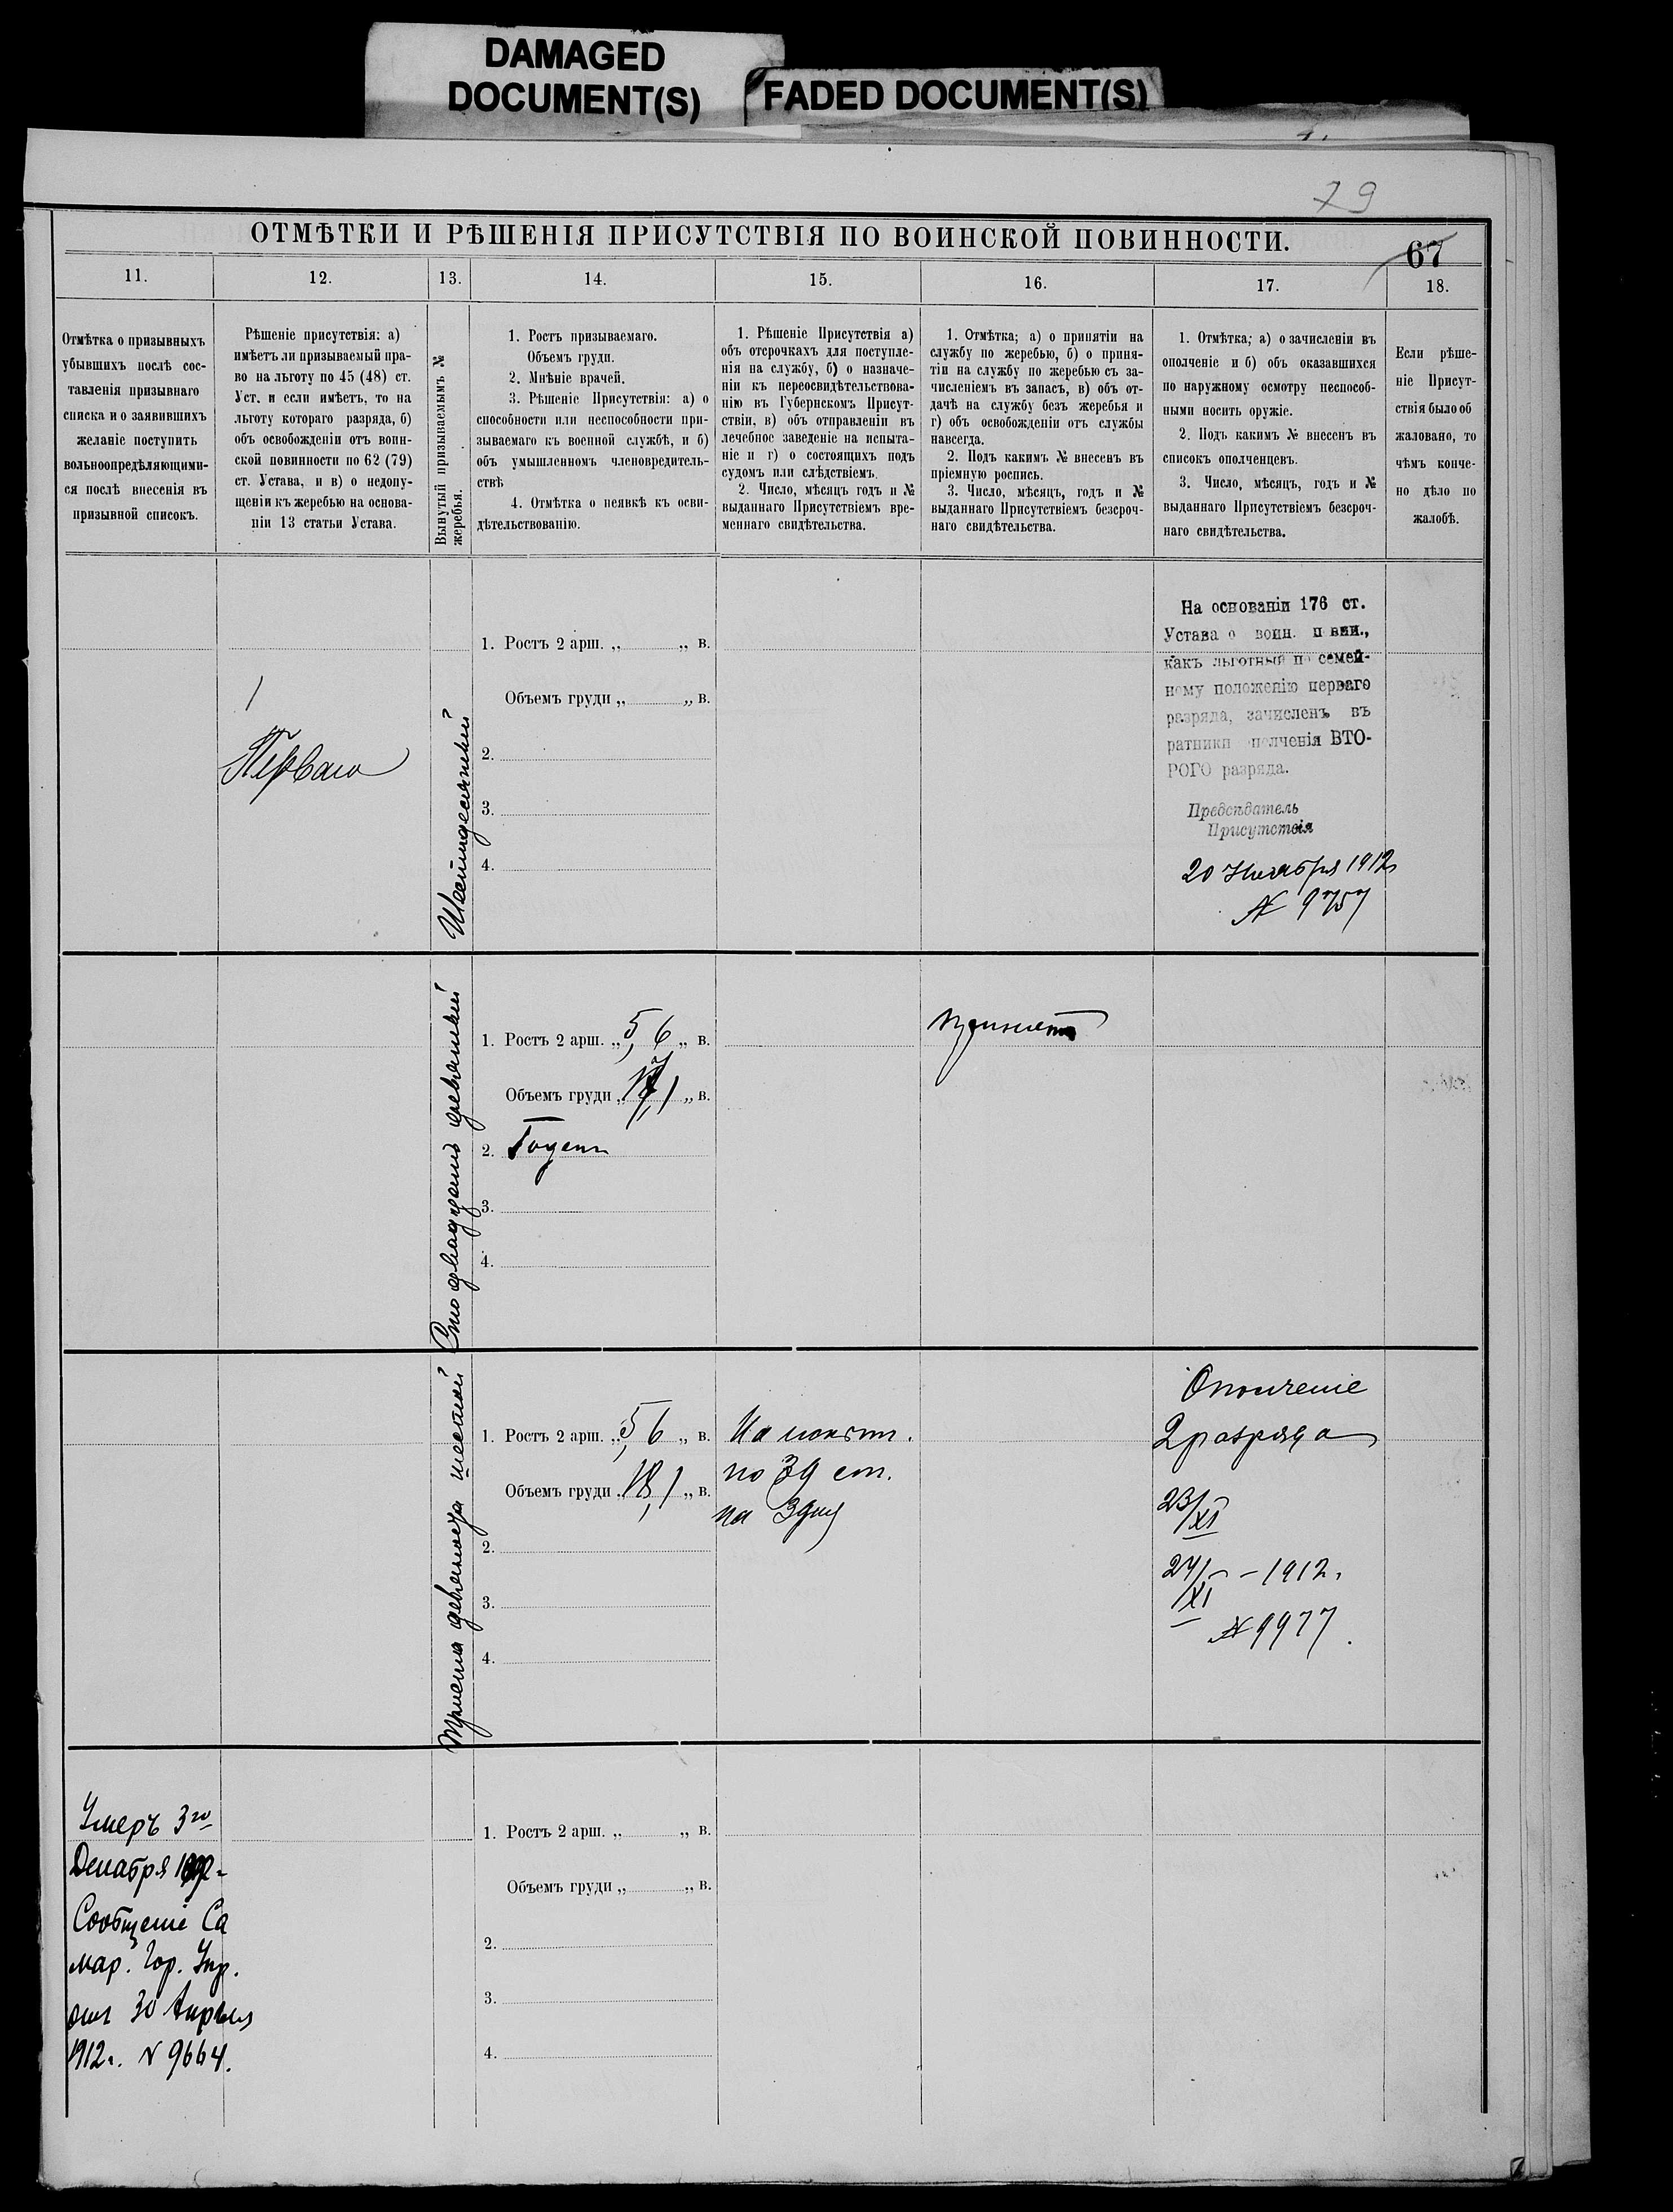 DAMAGED
DOCUMENT(S)
FADED DOCUMENT(S)
79
ОТМѢТКИ И РѢШЕНІЯ ПРИСУТСТВІЯ ПО ВОИНСКОЙ ПОВИННОСТИ.
67
11.
12.
13.
14.
15.
16.
17.
18.
Отмѣтка о призывныхъ
убывшихъ послѣ сос-
тавленія призывнаго
списка и о заявившихъ
желаніе поступить
вольноопредѣляющими-
ся послѣ внесенія въ
призывной списокъ.
Рѣшеніе присутствія: а)
имѣетъ ли призываемый пра-
во на льготу по 45 (48) ст.
Уст. и если имѣетъ, то на
льготу котораго разряда, б)
объ освобожденіи отъ воин-
ской повинности по 62 (79)
ст. Устава, и в) о недопу-
щеніи къ жеребью на основа-
ніи 13 статьи Устава.
Вынутый призываемымъ №
жеребья.
1. Ростъ призываемаго.
Объемъ груди.
2. Мнѣніе врачей.
3. Рѣшеніе Присутствія: а) о
способности или неспособности при-
зываемаго къ военной службѣ, и б)
объ умышленномъ членовредитель-
ствѣ
4. Отмѣтка о неявкѣ къ осви-
дѣтельствованію.
1. Рѣшеніе Присутствія а)
объ отсрочкахъ для поступле-
нія на службу, б) о назначе-
ніи къ переосвидѣтельствова-
нію въ Губернскомъ Присут-
ствіи, в) объ отправленіи въ
лечебное заведеніе на испыта-
ніе и г) о состоящихъ подъ
судомъ или слѣдствіемъ.
2. Число, мѣсяцъ годъ и №
выданнаго Присутствіемъ вре-
меннаго свидѣтельства.
1. Отмѣтка; а) о принятіи на
службу по жеребью, б) о приня-
тіи на службу по жеребью съ за-
численіемъ въ запасъ, в) объ от-
дачѣ на службу безъ жеребья и
г) объ освобожденіи отъ службы
навсегда.
2. Подъ какимъ № внесенъ въ
пріемную роспись.
3. Число, мѣсяцъ, годъ и №
выданнаго Присутствіемъ безсроч-
наго свидѣтельства.
1. Отмѣтка; а) о зачисленіи въ
ополченіе и б) объ оказавшихся
по наружному осмотру неспособ-
ными носить оружіе.
2. Подъ какимъ № внесенъ въ
списокъ ополченцевъ.
3. Число, мѣсяцъ, годъ и №
выданнаго Присутствіемъ безсроч-
наго свидѣтельства.
Если рѣше-
ніе Присут-
ствія было об
жаловано, то
чѣмъ конче-
но дѣло по
жалобѣ.
1
Перваго
Шестидесятый
1. Ростъ 2 арш. „ „ в.
Объемъ груди „ „ в.
2.
3.
4.
На основаніи 176 ст.
Устава о воин. повин.,
какъ льготный по семей-
ному положенію перваго
разряда, зачисленъ въ
ратники ополченія ВТО-
РОГО разряда.
Предсѣдатель
Присутствія
20 Ноября 1912
№ 9757
Сто двадцать девятый
1. Ростъ 2 арш. „ 5,6 „ в.
Объемъ груди „ ,1 „ в.
2. Годенъ
3.
4.
принятъ
Триста девяносто шестой
1. Ростъ 2 арш. „ 5,6 „ в.
Объемъ груди „ 18,1 „ в.
2.
3.
4.
На испыт.
по 39 ст.
на 3 дня
Ополченіе
2 разряда
23/XI
24/XI – 1912.
№ 9977.
Умеръ 3го
Декабря
Сообщеніе Са
мар. Гор. Упр.
отъ 30 Апрѣля
1912 г. № 9664.
1. Ростъ 2 арш. „ „ в.
Объемъ груди „ „ в.
2.
3.
4.